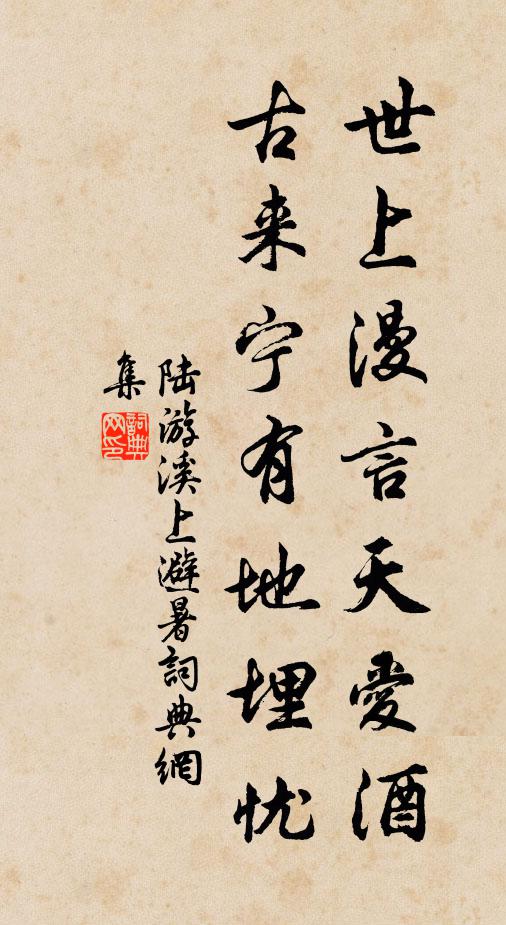 世上漫言天愛酒
古来宁有地埋忧
陆游溪上避暑詞典網
集
詞典網印